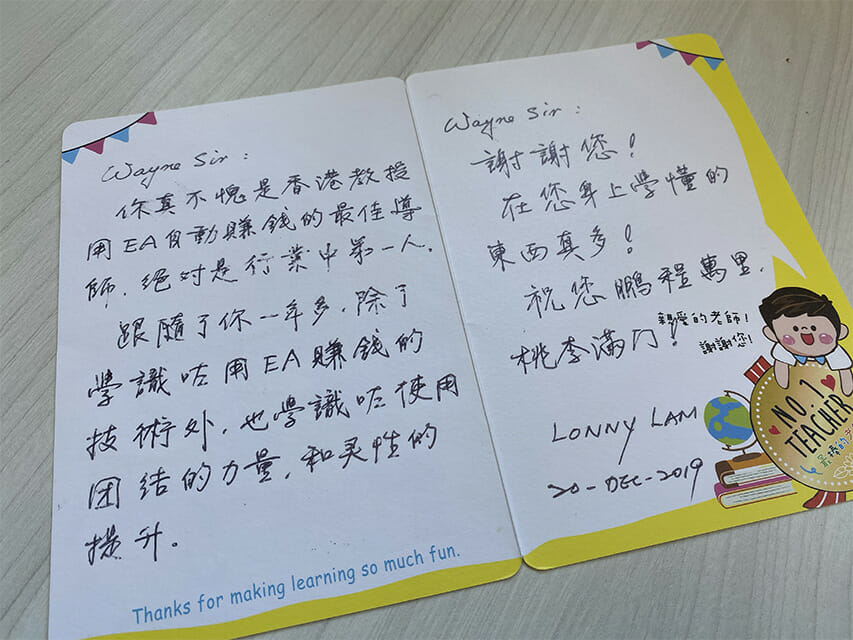 Wayne Sir:
你真不愧是香港教授
用EA自動賺錢的最佳導
師.絕对是行業中第一人.
跟隨了你一年多.除了
學識咗用EA賺錢的
技術外,也學識咗使用
团結的力量,和灵性的
提升。
Thanks for making learning so much fun.
Wayne Sir:
謝謝您!
在您身上學懂的
東西真多!
祝您鵬程萬里.
桃李滿门!
親愛的老師!
謝謝您!
LONNY LAM
20-DEC-2019
NO.1
TEACHER
最棒的